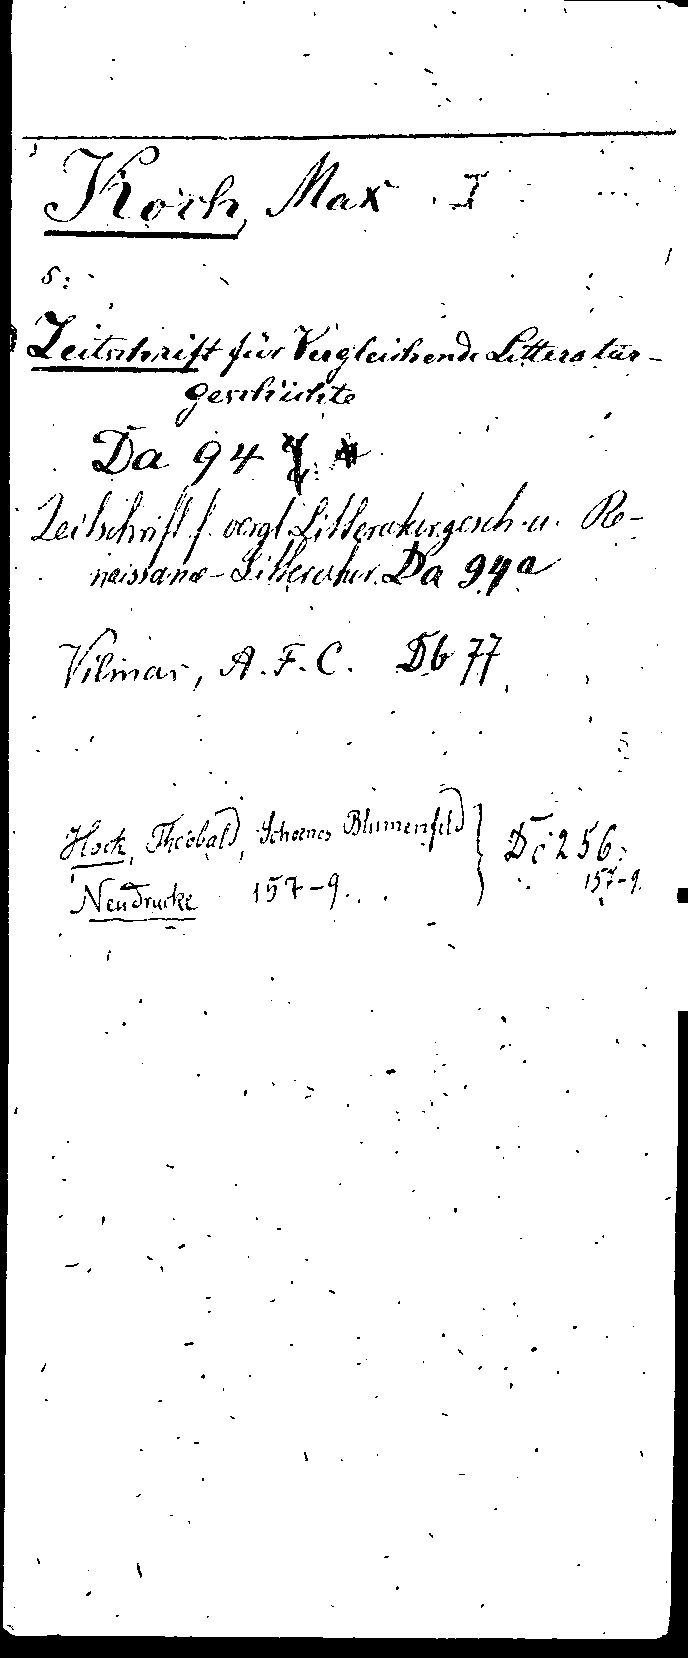 Koch, Max I
s:
Zeitschrift für Vergleichende Litteratur-
geschichte
Da 94
Zeitschrift f. vergl. Litteraturgesch. u. Re-
naissance-Litteratur. Da 94a
Vilmar, A. F. C. Db 77
Hock, Theobald, Schoenes Blumenfeld } Dc 256:
Neudrucke 157-9. 157-9.